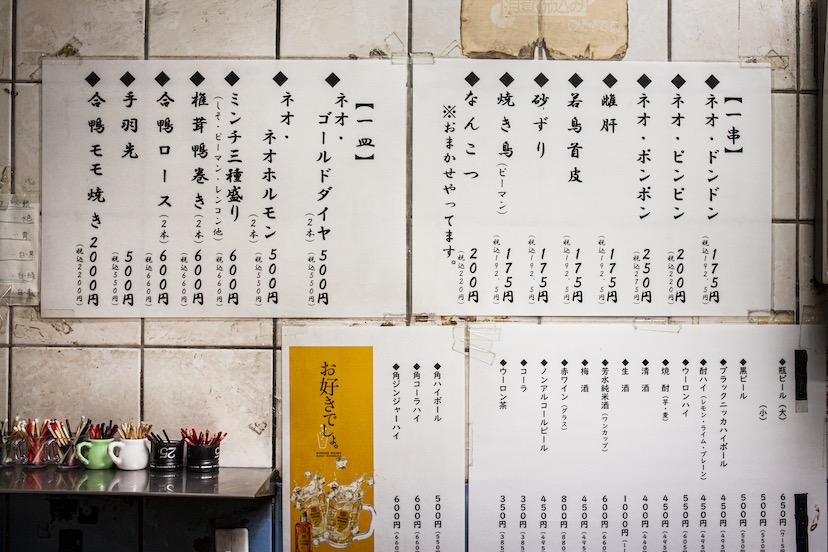 消費税込み
【一串】
◆ネオ・ドンドン 175円
(税込192.5円)
◆ネオ・ビンビン 200円
(税込220円)
◆ネオ・ボンボン 250円
(税込275円)
◆雌肝 175円
(税込192.5円)
◆若鳥首皮 175円
(税込192.5円)
◆砂ずり 175円
(税込192.5円)
◆焼き鳥(ピーマン) 175円
(税込192.5円)
◆なんこつ 200円
(税込220円)
※おまかせやってます。
【一皿】
◆ネオ・
ゴールドダイヤ 500円
(2本) (税込550円)
◆ネオ・
ネオホルモン 500円
(2本) (税込550円)
◆ミンチ三種盛り 600円
(しそ・ピーマン・レンコン他) (税込660円)
◆椎茸鴨巻き(2本) 600円
(税込660円)
◆合鴨ロース(2本) 600円
(税込660円)
◆手羽先 500円
(税込550円)
◆合鴨モモ焼き 2000円
(税込2200円)
◆瓶ビール(大) 650円
(小) 500円
◆黒ビール 500円
◆ブラックニッカハイボール 450円
◆酎ハイ(レモン・ライム・プレーン) 450円
◆ウーロンハイ 500円
◆焼酎(芋・麦) 450円
◆清酒 400円
◆生酒 1000円
◆芳水純米酒(ワンカップ) 600円
◆梅酒 450円
◆赤ワイン(グラス) 800円
◆ノンアルコールビール 450円
◆コーラ 350円
◆ウーロン茶 350円
◆角ハイボール 500円
◆角コーラハイ 600円
◆角ジンジャーハイ 600円
お好きでしょ。
25